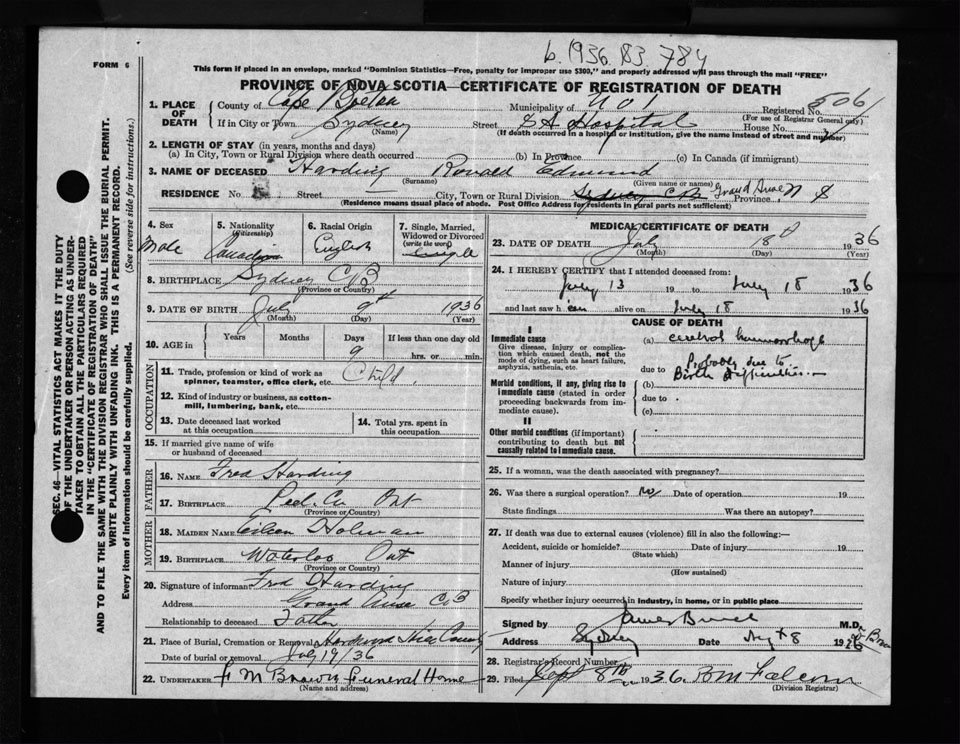 b. 1936. 83. 784
FORM 6
This form if placed in an envelope, marked "Dominion Statistics—Free, penalty for improper use $300," and properly addressed will pass through the mail "FREE"
PROVINCE OF NOVA SCOTIA—CERTIFICATE OF REGISTRATION OF DEATH
1. PLACE OF DEATH
County of Cape Breton Municipality of No 1 Registered No. 506
(For use of Registrar General only)
If in City or Town Sydney Street S A Hospital House No.
(Name) (If death occurred in a hospital or institution, give the name instead of street and number)
2. LENGTH OF STAY (in years, months and days)
(a) In City, Town or Rural Division where death occurred (b) In Province (c) In Canada (if immigrant)
3. NAME OF DECEASED Harding Ronald Edmund
(Surname) (Given name or names)
RESIDENCE No. Street City, Town or Rural Division Sydney C B Grand Anse Province N S
(Residence means usual place of abode. Post Office Address for residents in rural parts not sufficient)
4. Sex
Male
5. Nationality
(Citizenship)
Canadian
6. Racial Origin
English
7. Single, Married, Widowed or Divorced
(write the word)
Single
8. BIRTHPLACE Sydney C B
(Province or Country)
9. DATE OF BIRTH July 9th 1936
(Month) (Day) (Year)
10. AGE in
Years Months Days If less than one day old
9 hrs. or min.
OCCUPATION
11. Trade, profession or kind of work as spinner, teamster, office clerk, etc. Child
12. Kind of industry or business, as cotton-mill, lumbering, bank, etc.
13. Date deceased last worked at this occupation
14. Total yrs. spent in this occupation
15. If married give name of wife or husband of deceased
FATHER
16. NAME Fred Harding
17. BIRTHPLACE Peel. Co Ont
(Province or Country)
MOTHER
18. MAIDEN NAME Eileen Holman
19. BIRTHPLACE Waterloo Ont
(Province or Country)
20. Signature of informant Fred Harding
Address Grand Anse C B
Relationship to deceased Father
21. Place of Burial, Cremation or Removal Hardwood Hill County
Date of burial or removal July 19/36
22. UNDERTAKER F M Brown Funeral Home
(Name and address)
MEDICAL CERTIFICATE OF DEATH
23. DATE OF DEATH July 18th 1936
(Month) (Day) (Year)
24. I HEREBY CERTIFY that I attended deceased from:
July 13 19 to July 18 1936
and last saw h im alive on July 18 1936
CAUSE OF DEATH
I
Immediate cause
Give disease, injury or complication which caused death, not the mode of dying, such as heart failure, asphyxia, asthenia, etc.
(a) cerebral haemorrhage
due to Probably due to Birth difficulties
Morbid conditions, if any, giving rise to immediate cause (stated in order proceeding backwards from immediate cause).
(b)
due to
(c)
II
Other morbid conditions (if important) contributing to death but not causally related to immediate cause.
25. If a woman, was the death associated with pregnancy?
26. Was there a surgical operation? No Date of operation 19
State findings Was there an autopsy?
27. If death was due to external causes (violence) fill in also the following:—
Accident, suicide or homicide? Date of injury 19
(State which)
Manner of injury
(How sustained)
Nature of injury
Specify whether injury occurred in industry, in home, or in public place
Signed by James Bruce M.D.
Address Sydney Date Aug 8 1936
28. Registrar's Record Number
29. Filed Sept 8th 1936
(Division Registrar)
SEC. 46—VITAL STATISTICS ACT MAKES IT THE DUTY
OF THE UNDERTAKER OR PERSON ACTING AS UNDERTAKER TO OBTAIN ALL THE PARTICULARS REQUIRED
IN THE "CERTIFICATE OF REGISTRATION OF DEATH"
AND TO FILE THE SAME WITH THE DIVISION REGISTRAR WHO SHALL ISSUE THE BURIAL PERMIT.
WRITE PLAINLY WITH UNFADING INK. THIS IS A PERMANENT RECORD.
Every item of information should be carefully supplied. (See reverse side for instructions.)